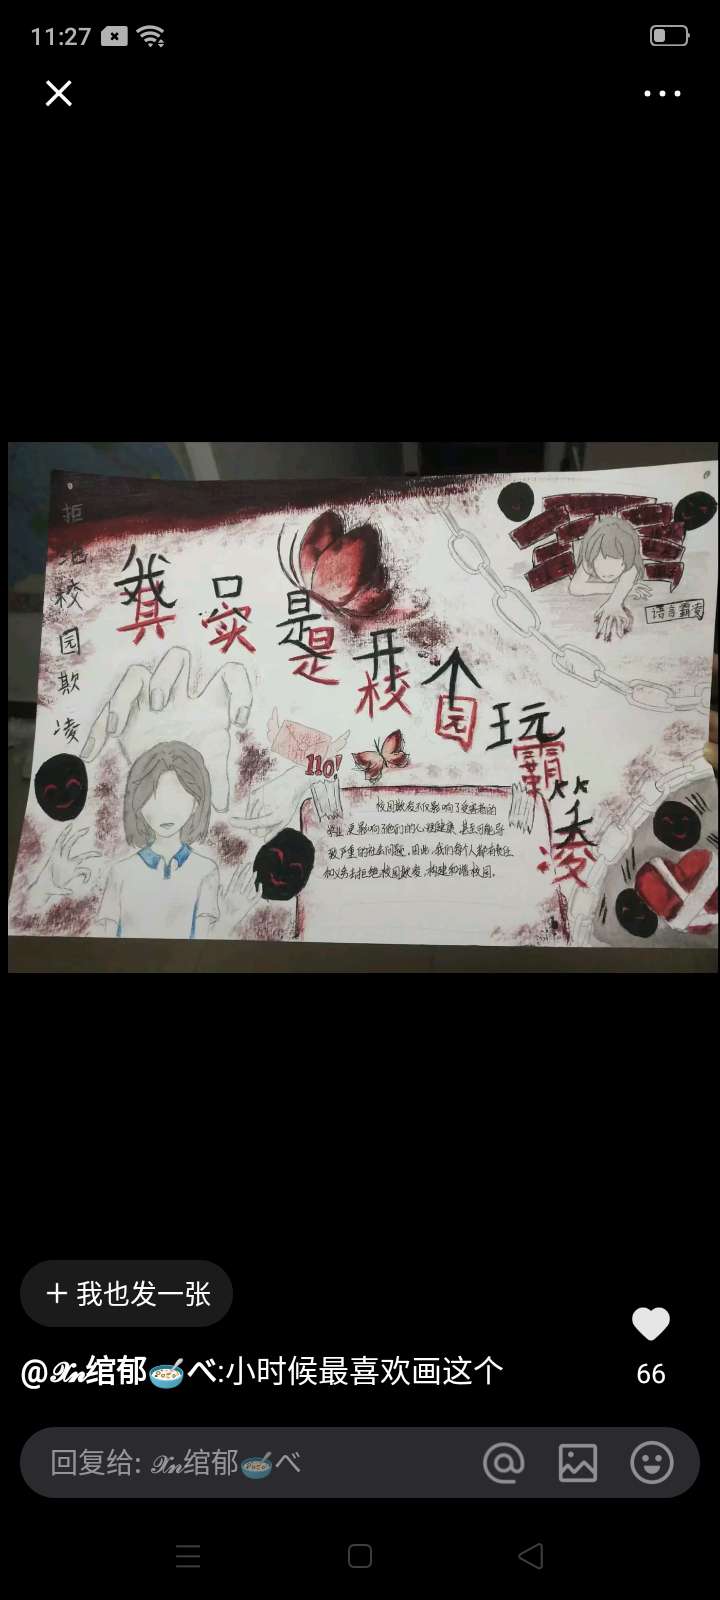 11:27
拒绝校园欺凌
我只是开个玩笑
其实是校园霸凌
语言霸凌
110!
校园欺凌不仅影响了受害者的
学业,更影响了他们的心理健康,甚至可能导
致严重的社会问题。因此,我们每个人都有责任
和义务去拒绝校园欺凌,构建和谐校园。
+ 我也发一张
@𝒳𝓃绾郁🍜べ:小时候最喜欢画这个
66
回复给: 𝒳𝓃绾郁🍜べ